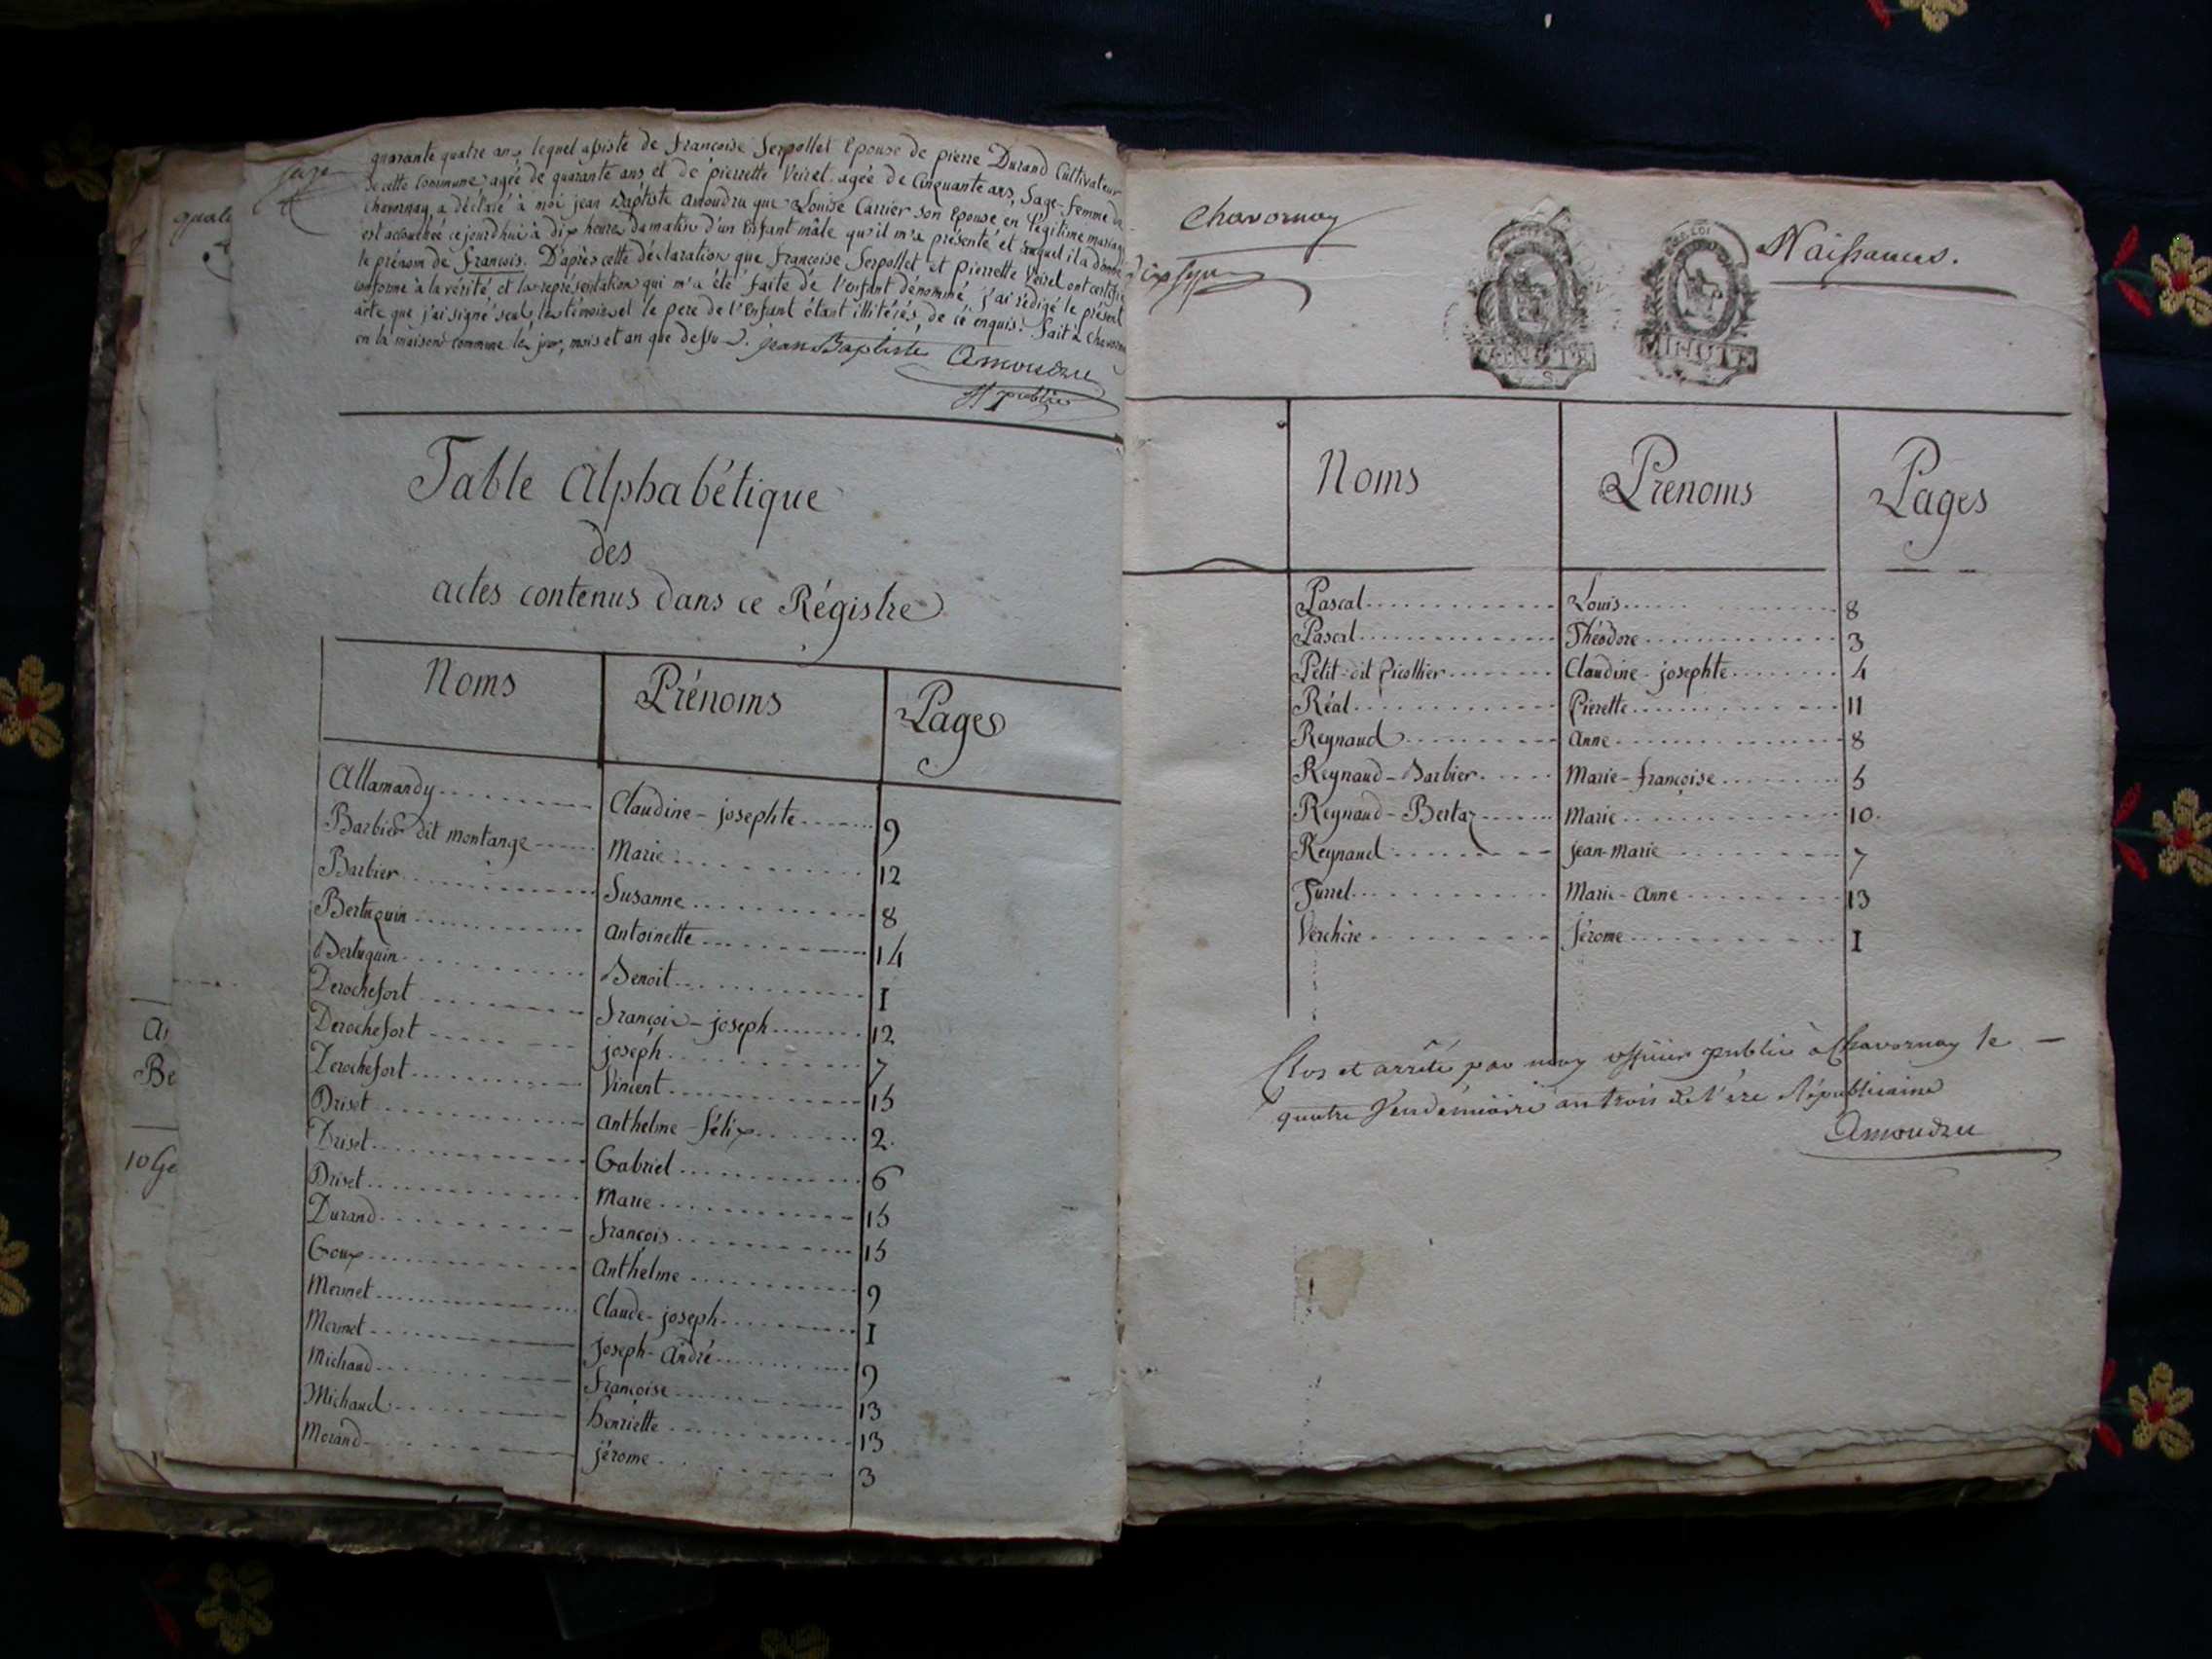 quarante quatre ans, lequel assisté de françoise Serpollet Epouse de pierre Durand Cultivateur
de cette Commune, agée de quarante ans et de pierrette Veiret, agée de Cinquante ans, Sage-femme de
Chavornay, a déclaré à moi jean Baptiste Amoudru que Louise Carrier son Epouse en légitime mariage
est accouchée cejourdhui à dix heures du matin d'un Enfant mâle qu'il m'a présenté et auquel il a donné
le prénom de françois. D'après cette déclaration que françoise Serpollet et pierrette Veiret ont certifié
conforme à la vérité, et la représentation qui m'a été faite de l'enfant dénommé, j'ai rédigé le présent
acte que j'ai signé seul, les témoins et le pere de l'Enfant étant illitérés, de ce enquis. fait à Chavornay
en la maison commune les jour, mois et an que dessus. jean Baptiste Amoudru
off public
Table Alphabétique
des
actes contenus dans ce Régistre
Noms Prénoms Pages
Allamandy Claudine-josephte 9
Barbier dit montange Marie 12
Barbier Susanne 8
Bertuquin Antoinette 14
Bertuquin Benoit I
Derochefort François-joseph 12
Derochefort joseph 7
Derochefort Vincent 15
Driset Anthelme-félix 2.
Driset Gabriel 6
Driset Marie 15
Durand françois 15
Goux Anthelme 9
Mermet Claude-joseph I
Mermet Joseph-André 9
Michaud françoise 13
Michaud henriette 13
Morand jérome 3
Chavornay
Naissances.
MINUTE
MINUTE
Noms Prenoms Pages
Pascal Louis 8
Pascal Théodore 3
Petit-dit picollier Claudine-josephte 4
Réal Pierette 11
Reynaud Anne 8
Reynaud-Barbier Marie-françoise 5
Reynaud-Bertaz Marie 10.
Reynaud jean-Marie 7
Turrel Marie-Anne 13
Verchère Jérome I
Clos et arrêté par moy officier public à Chavornay le
quatre Vendémiaire an trois de l'ère Républicaine
Amoudru